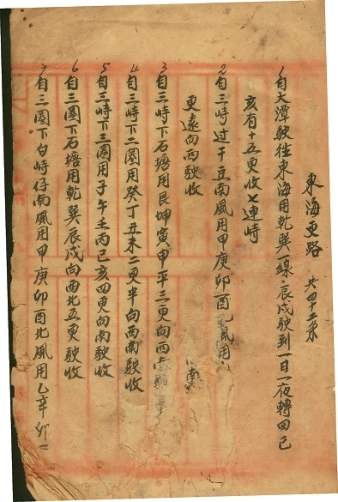 東海更路 共四十二条
1自大潭駛往東海用乾巽一線辰戌駛到一日一夜轉回己
亥有十五更收七連峙
2自三峙过干豆南風用甲庚卯酉北風用
更遠向西駛收
3自三峙下石塘用艮坤寅申平三更向西南
4自三峙下二圈用癸丁丑未二更半向西南駛收
5自三峙下三圈用子午壬丙己亥四更向南駛收
6自三圈下石塘用乾巽辰戌向西北五更駛收
7自三圈下白峙仔南風用甲庚卯酉北風用乙辛卯